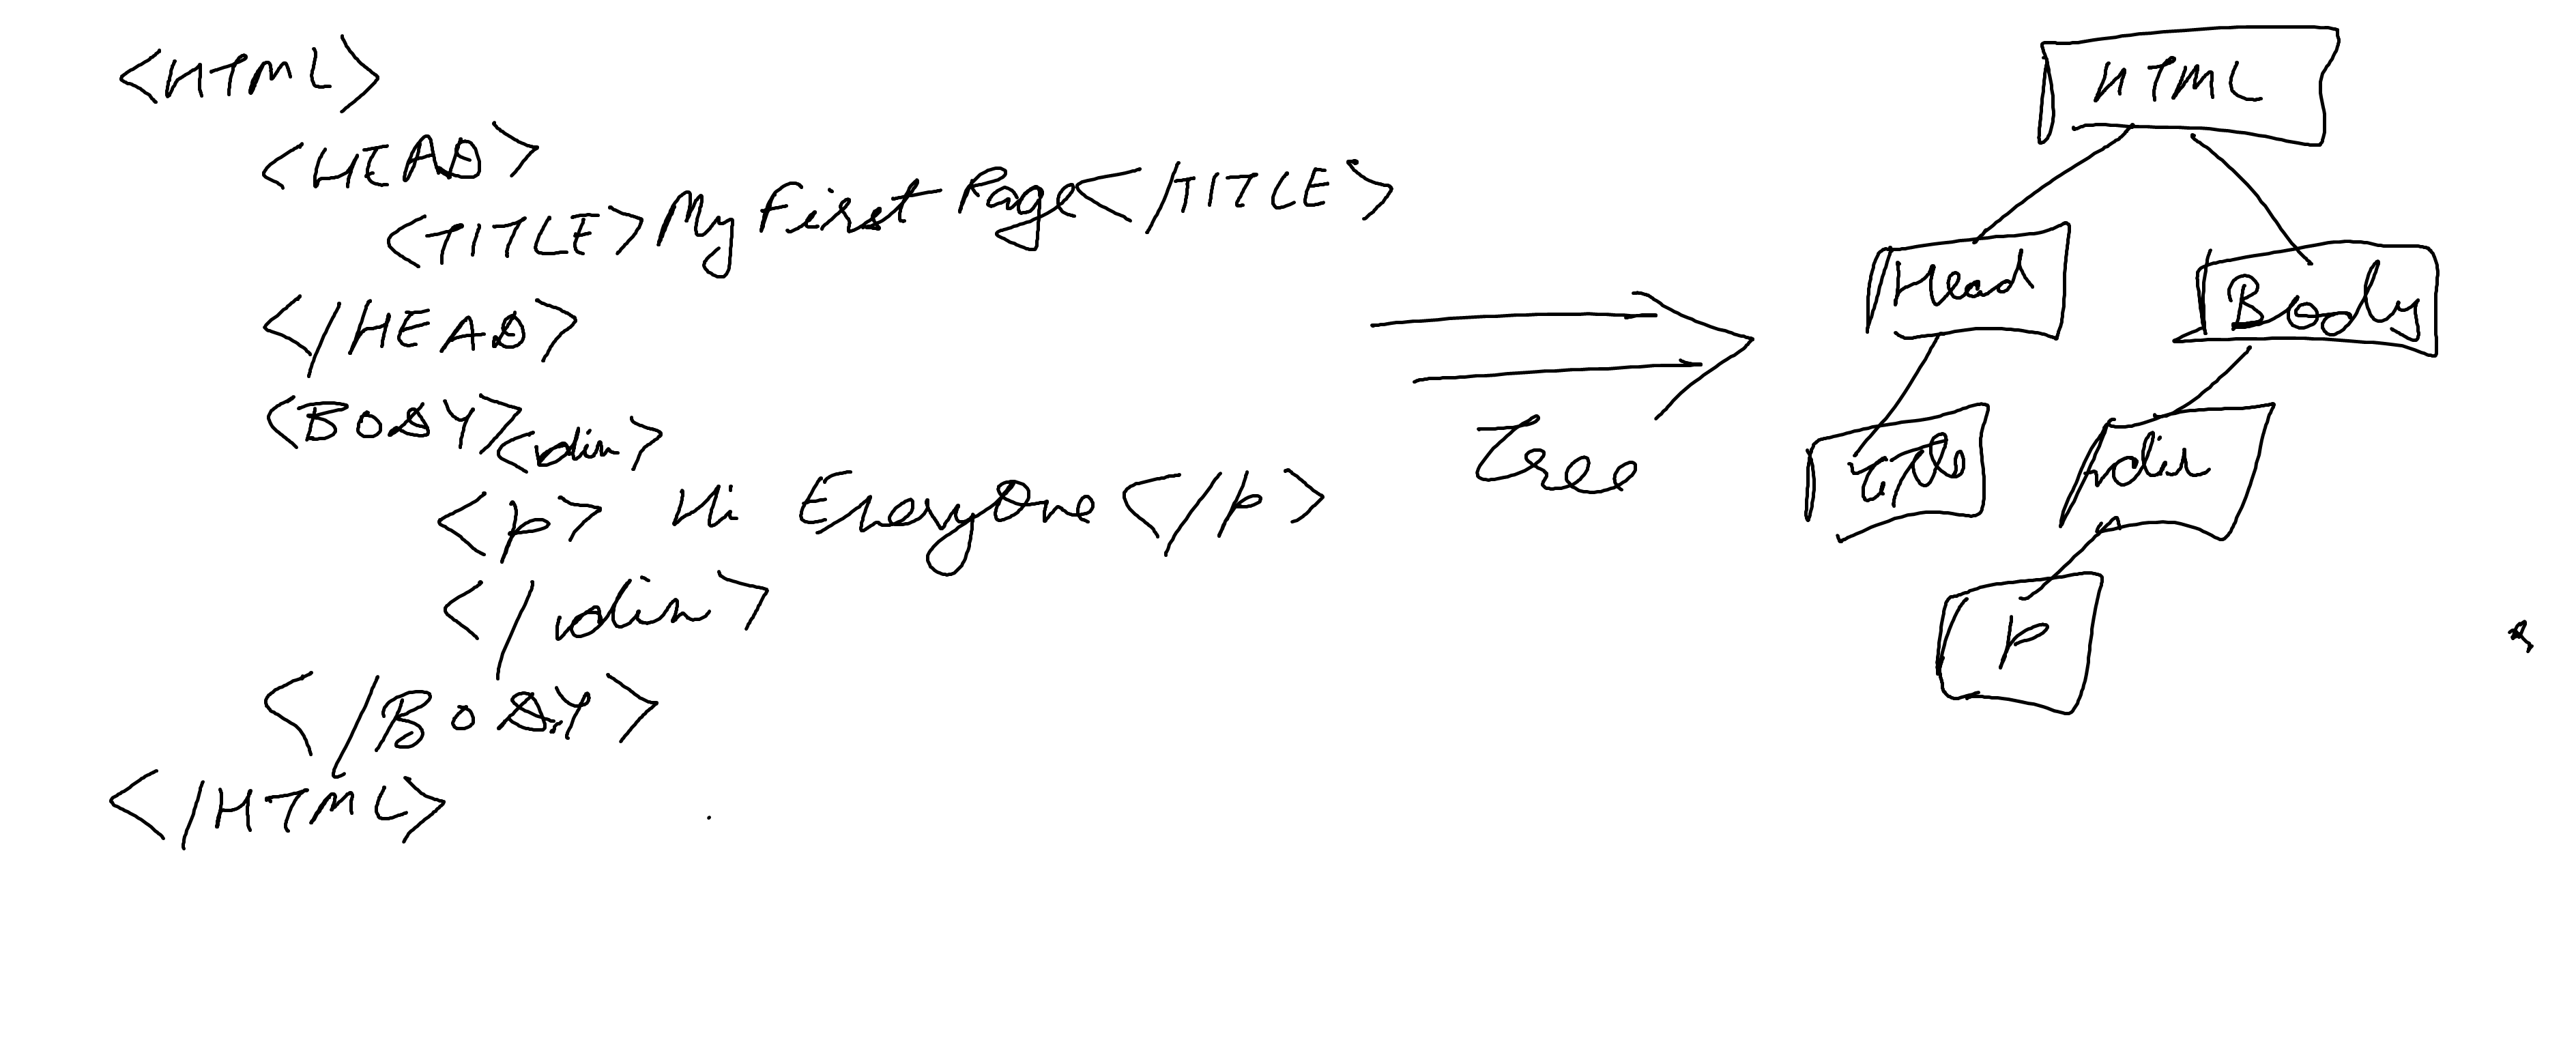 <HTML>
<HEAD>
<TITLE>My First Page</TITLE>
</HEAD>
<BODY><div>
<p> Hi EveryOne </p>
</div>
</BODY>
</HTML>
Tree
HTML
Head
Body
title
div
p